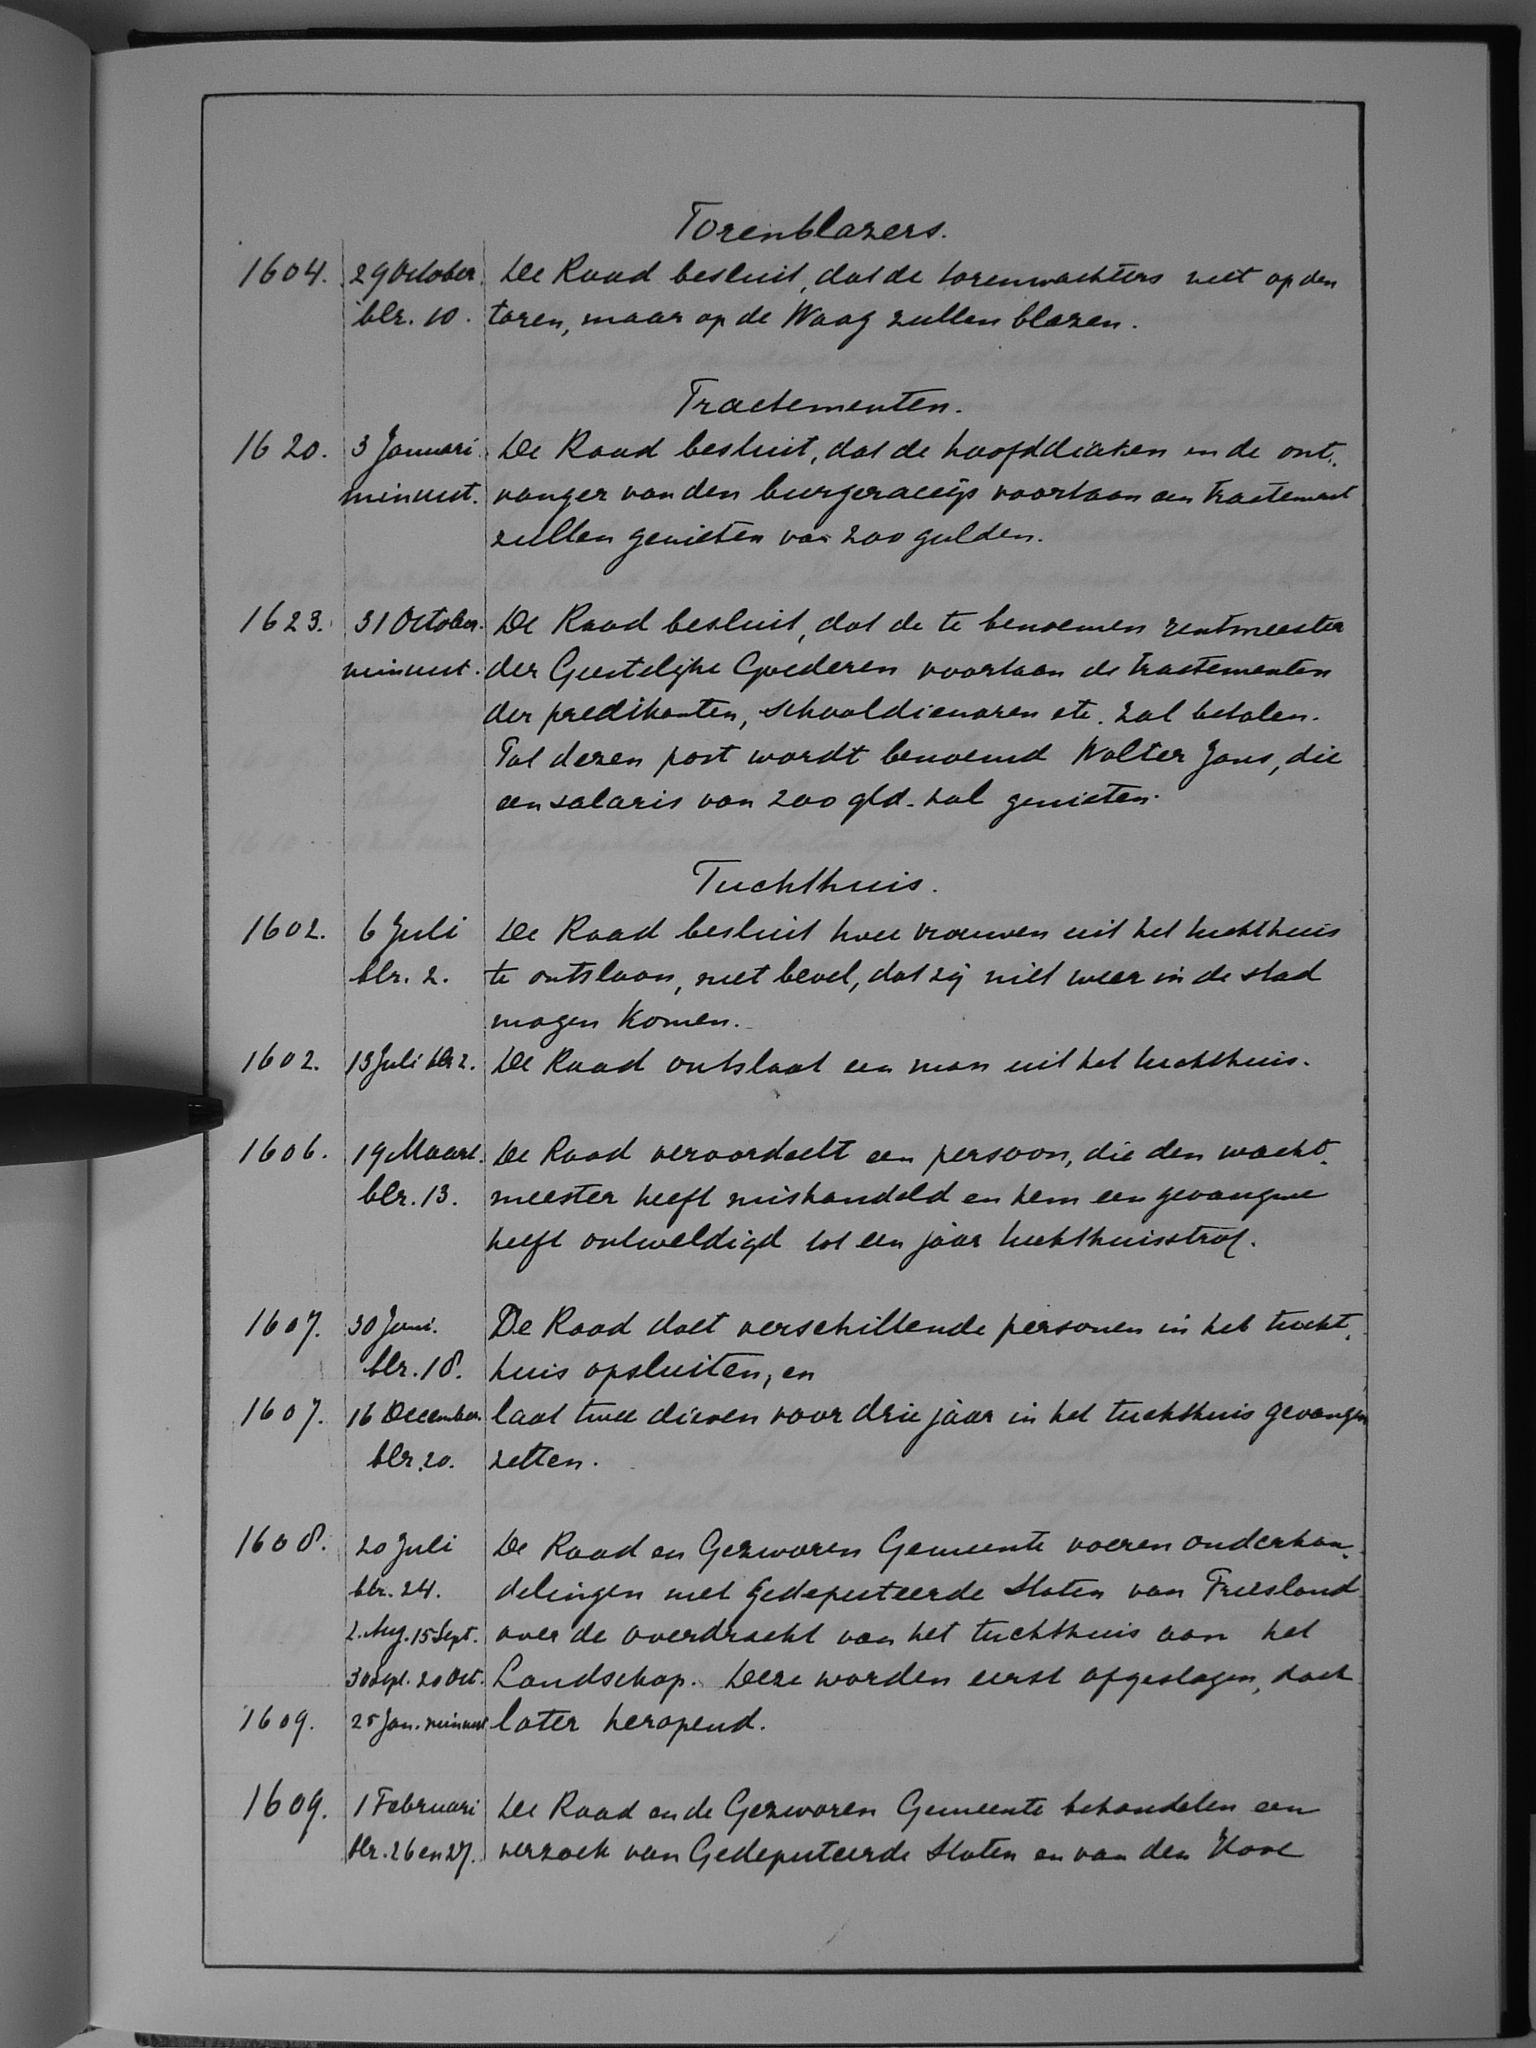 Torenblazers.
1604. 29 October. De Raad besluit, dat de torenwachters niet op den
blz. 10. toren, maar op de Waag zullen blazen.
Tractementen.
1620. 3 Januari. De Raad besluit, dat de hoofddiaken en de ont-
minuut. vanger van den burgeraccijs voortaan een tractement
zullen genieten van 200 gulden.
1623. 31 October. De Raad besluit, dat de te benoemen rentmeester
minuut. der Geestelijke Goederen voortaan de tractementen
der predikanten, schooldienaren etc. zal betalen.
Tot dezen post wordt benoemd Wolter Jans, die
een salaris van 200 gld. zal genieten.
Tuchthuis.
1602. 6 Juli De Raad besluit twee vrouwen uit het tuchthuis
blz. 2. te ontslaan, met bevel, dat zij niet weer in de stad
mogen komen.
1602. 13 Juli blz 2. De Raad ontslaat een man uit het tuchthuis.
1606. 19 Maart. De Raad veroordeelt een persoon, die den wacht-
blz. 13. meester heeft mishandeld en hem een gevangene
heeft ontweldigd tot een jaar tuchthuisstraf.
1607. 30 Juni. De Raad doet verschillende personen in het tucht-
blz. 18. huis opsluiten, en
1607. 16 December laat twee dieven voor drie jaar in het tuchthuis gevangen
blz. 20. zetten.
1608. 20 Juli De Raad en Gezworen Gemeente voeren onderhan-
blz. 24. delingen met Gedeputeerde Staten van Friesland
2. Aug. 15 Sept. over de overdracht van het tuchthuis aan het
30 Sept. 20 Oct. Landschap. Deze worden eerst afgeslagen, doch
1609. 25 Jan. minuut later heropend.
1609. 1 Februari De Raad en de Gezworen Gemeente behandelen een
blz. 26 en 27. verzoek van Gedeputeerde Staten en van den Hove